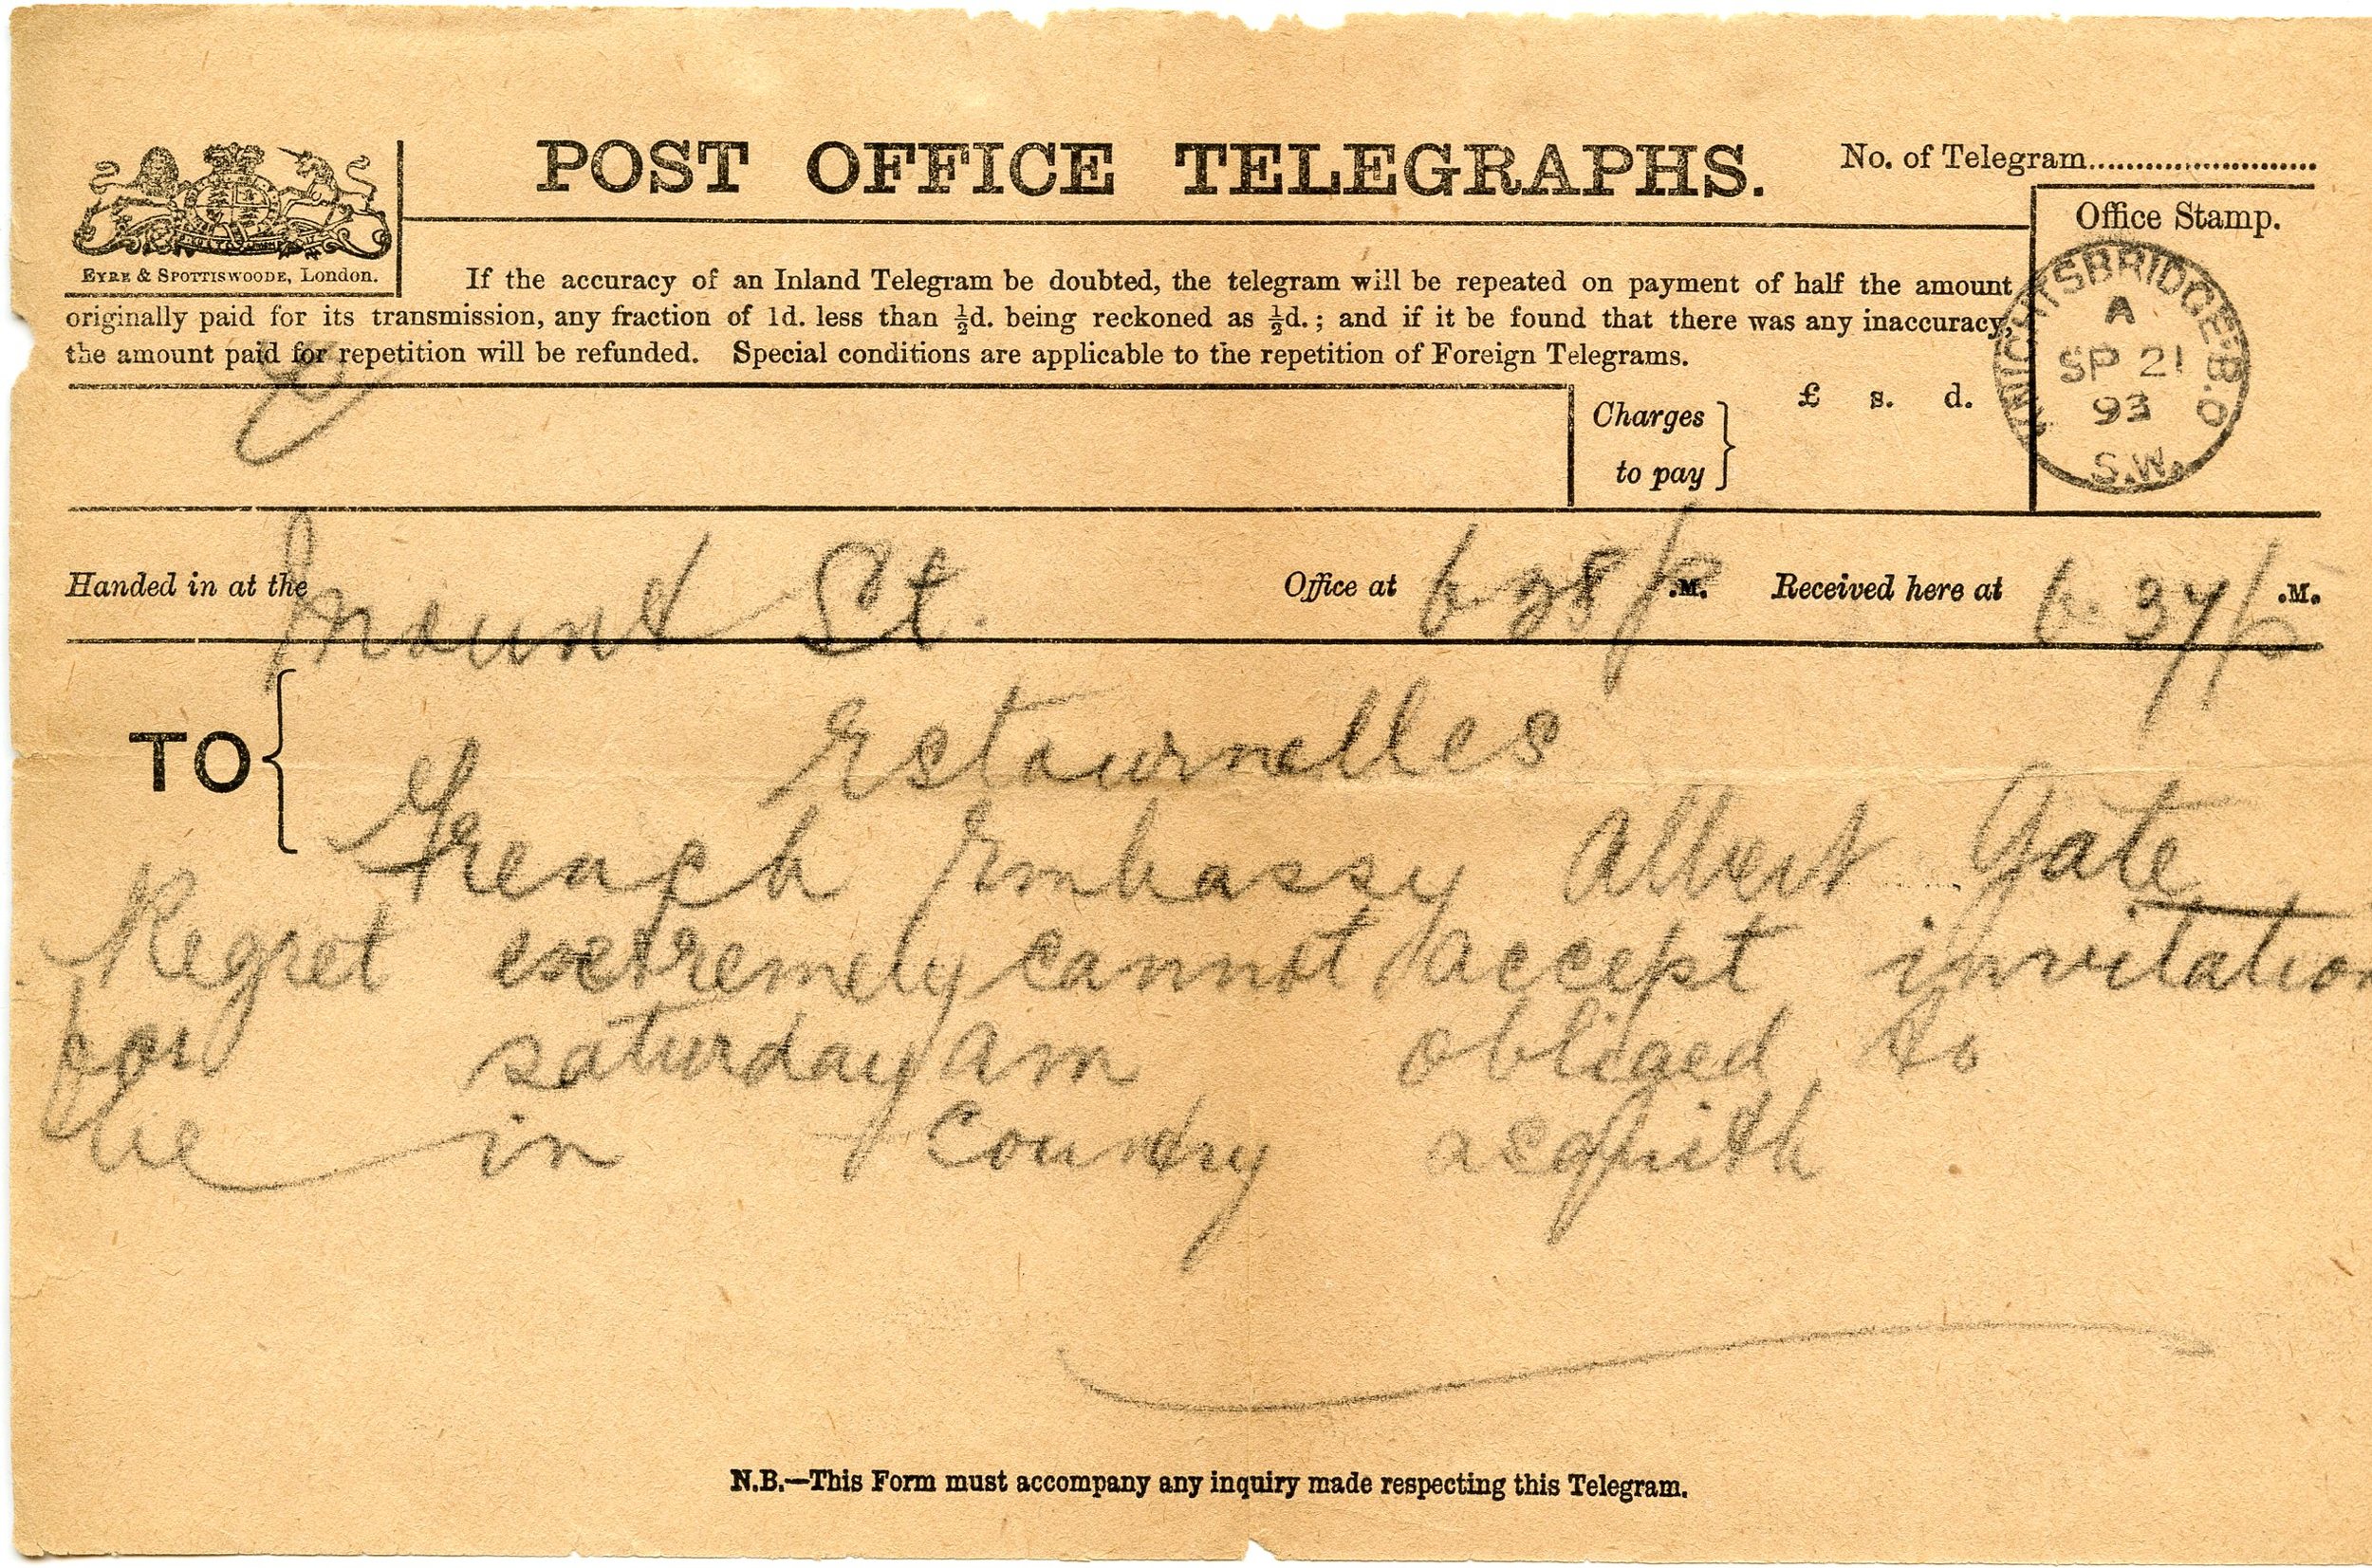 POST OFFICE TELEGRAPHS.
No. of Telegram
Office Stamp.
EYRE & SPOTTISWOODE, London.
If the accuracy of an Inland Telegram be doubted, the telegram will be repeated on payment of half the amount
originally paid for its transmission, any fraction of 1d. less than ½d. being reckoned as ½d.; and if it be found that there was any inaccuracy,
the amount paid for repetition will be refunded. Special conditions are applicable to the repetition of Foreign Telegrams.
KNIGHTSBRIDGE B.O
A
SP 21
93
S.W.
Charges
to pay
£ s. d.
Handed in at the Mount St. Office at 6 28/p .M. Received here at 6. 37/p .M.
TO
Estournelles
French Embassy Albert Gate
Regret extremely cannot accept invitation
for saturday am obliged to
be in Country asquith
N.B.—This Form must accompany any inquiry made respecting this Telegram.